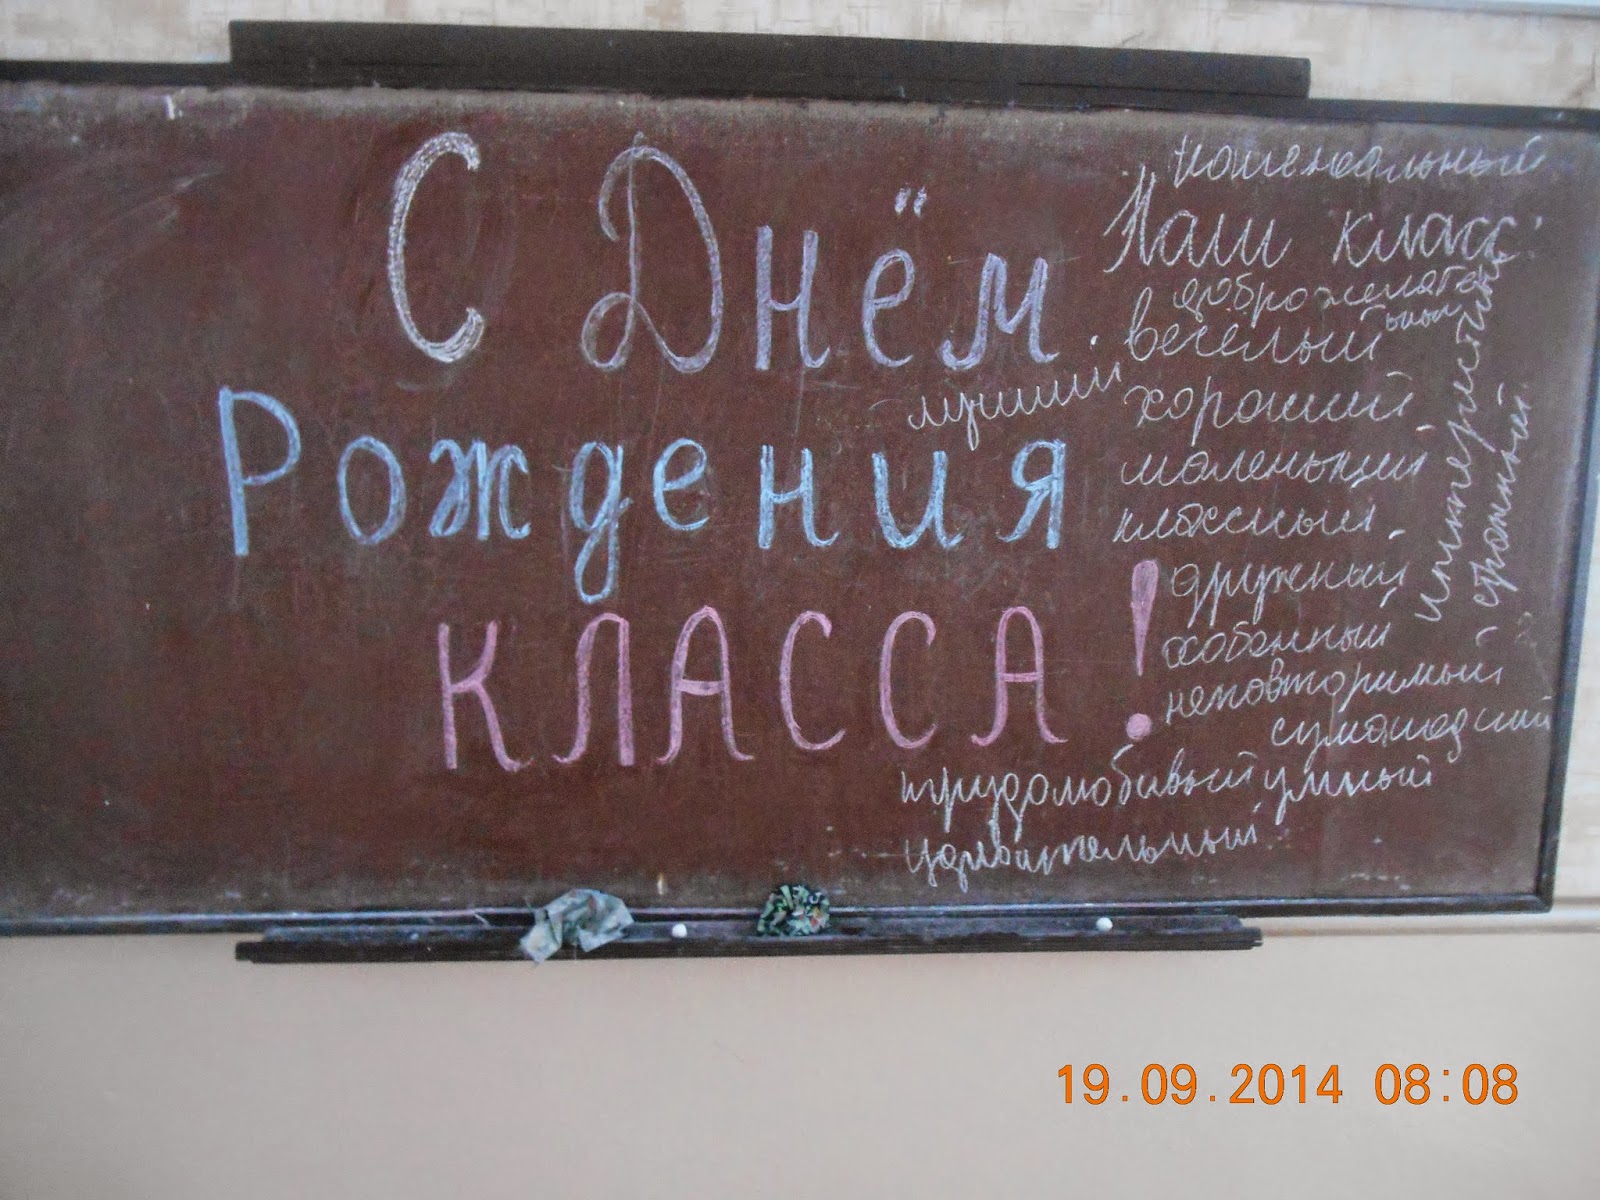 С Днём
Рождения
КЛАССА!
Наш класс:
доброжелатель
ный
весёлый
лучший
хороший
маленький
классный
дружный
особенный
неповторимый
сумашедший
трудолюбивый умный
удивительный
странный
19.09.2014 08:08